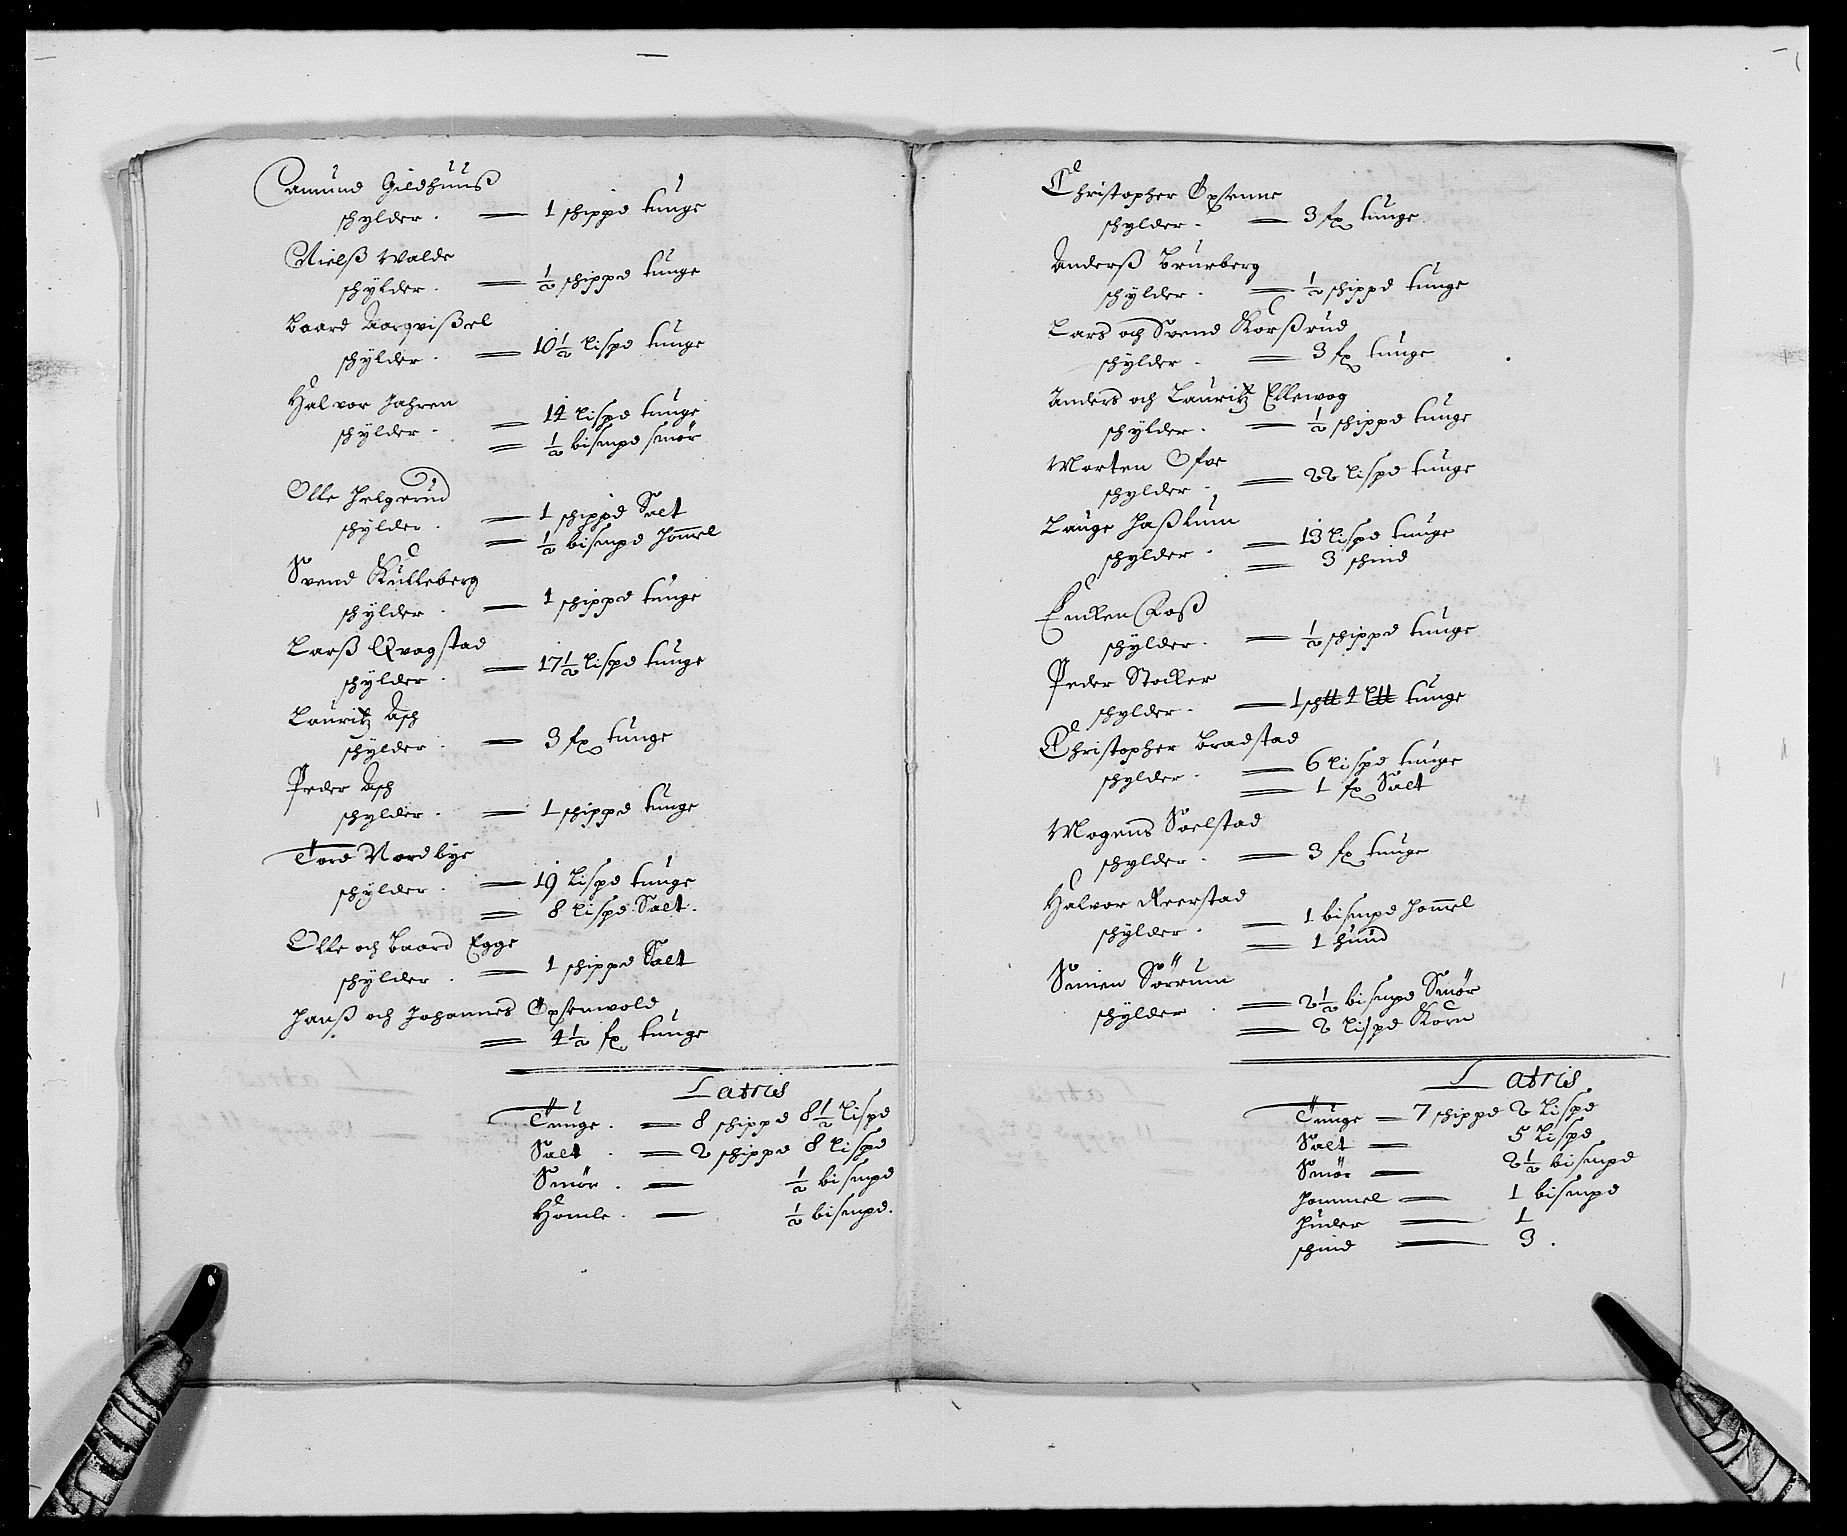 Amund Gildhuus
schylder. — 1 schippd tunge
Nielß Walde
schylder. — ½ schippd tunge
Baard Aarqvißel
schylder. — 10½ lispd tunge
Halvor Jahren
schylder. — 14 lispd tunge
— ½ bismpd smør
Olle Helgerud
schylder. — 1 schippd Salt
— ½ bismpd Hom̄el
Svend Kulleberg
schylder. — 1 schippd tunge
Larß Qvagstad
schylder. — 17½ lispd tunge
Lauritz Asch
schylder. — 3 fr. tunge
Peder Asch
schylder. — 1 schippd tunge
Tord Nordbye
schylder. — 19 lispd tunge
— 8 lispd Salt.
Olle och Baard Egge
schylder. — 1 schippd Salt
Hanß och Johannes Opsenvold
— 4½ fr. tunge
Latris
Tunge. — 8 schippd 8½ lispd
Salt. — 2 schippd 8 lispd
Smör. — ½ bismpd
Homle. — ½ bismpd.
Christopher Opsenne
schylder. — 3 fr. tunge
Anderß Brurberg
schylder. — ½ schippd tunge
Lars och Svend Korßrud
schylder. — 3 fr. tunge
Anders och Lauritz Ellewog
schylder. — ½ schippd tunge
Morten Ofve
schylder. — 22 lispd tunge
Lauge Haßlum
schylder. — 13 lispd tunge
— 3 schind
schylder. — ½ schippd tunge
Peder Stocker
schylder. — 1 sch℔ 4 l℔ tunge
Christopher Bradstad
schylder. — 6 lispd tunge
— 1 fr. Salt
Mogens Soelstad
schylder. — 3 fr. tunge
Halvor Reerstad
schylder. — 1 bismpd Hom̄el
— 1 huud
Simen Sörrum
schylder. — 2½ bismpd Smör
— 2 lispd Korn
Latris
Tunge — 7 schippd 2 lispd
Salt — 5 lispd
Smör — 2½ bismpd
Hommel — 1 bismpd
Huder — 1
schind — 3.